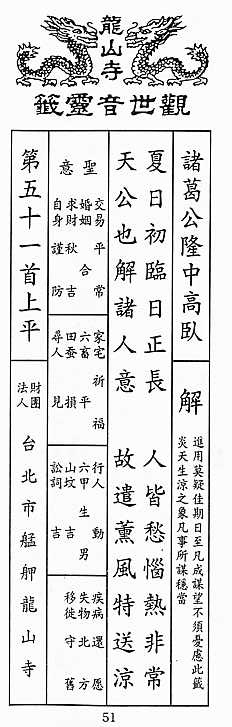 龍山寺
觀世音靈籤
諸葛公隆中高臥
解
進用莫疑佳期日至凡成謀望不須憂慮此籤
炎天生涼之象凡事所謀穩當
夏日初臨日正長 人皆愁惱熱非常
天公也解諸人意 故遣薰風特送涼
聖意
交易 平常
婚姻 合
求財 秋吉
自身 謹防
家宅 祈福
六畜 平
田蚕 損
尋人 見
行人 動
六甲 生男
山坟 吉
訟詞 吉
疾病 還愿
失物 北方
移徙 守舊
第五十一首上平
財團
法人
台北市艋舺龍山寺
51